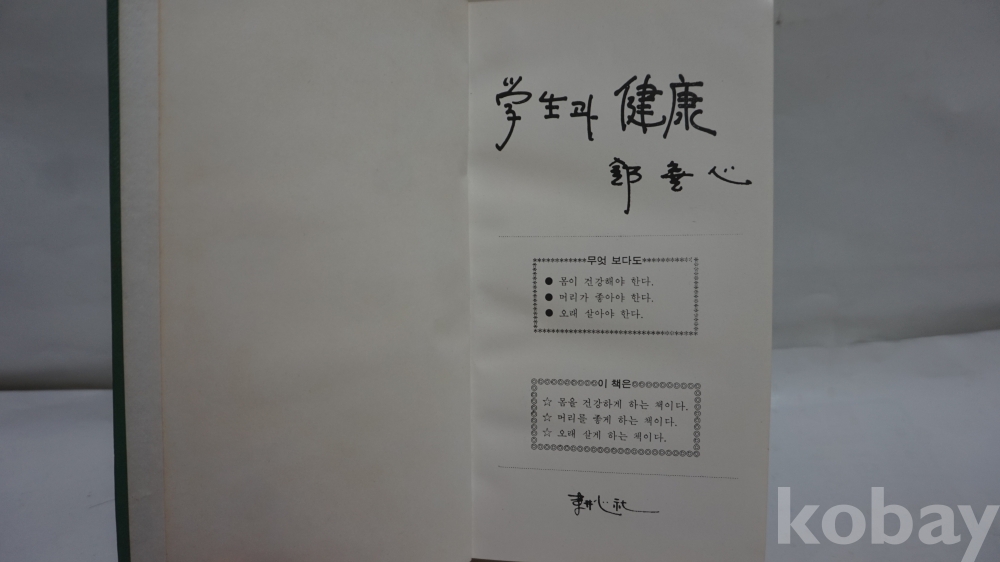 学生과 健康
무엇 보다도
● 몸이 건강해야 한다.
● 머리가 좋아야 한다.
● 오래 살아야 한다.
이 책은
☆ 몸을 건강하게 하는 책이다.
☆ 머리를 좋게 하는 책이다.
☆ 오래 살게 하는 책이다.
耕心社
kobay